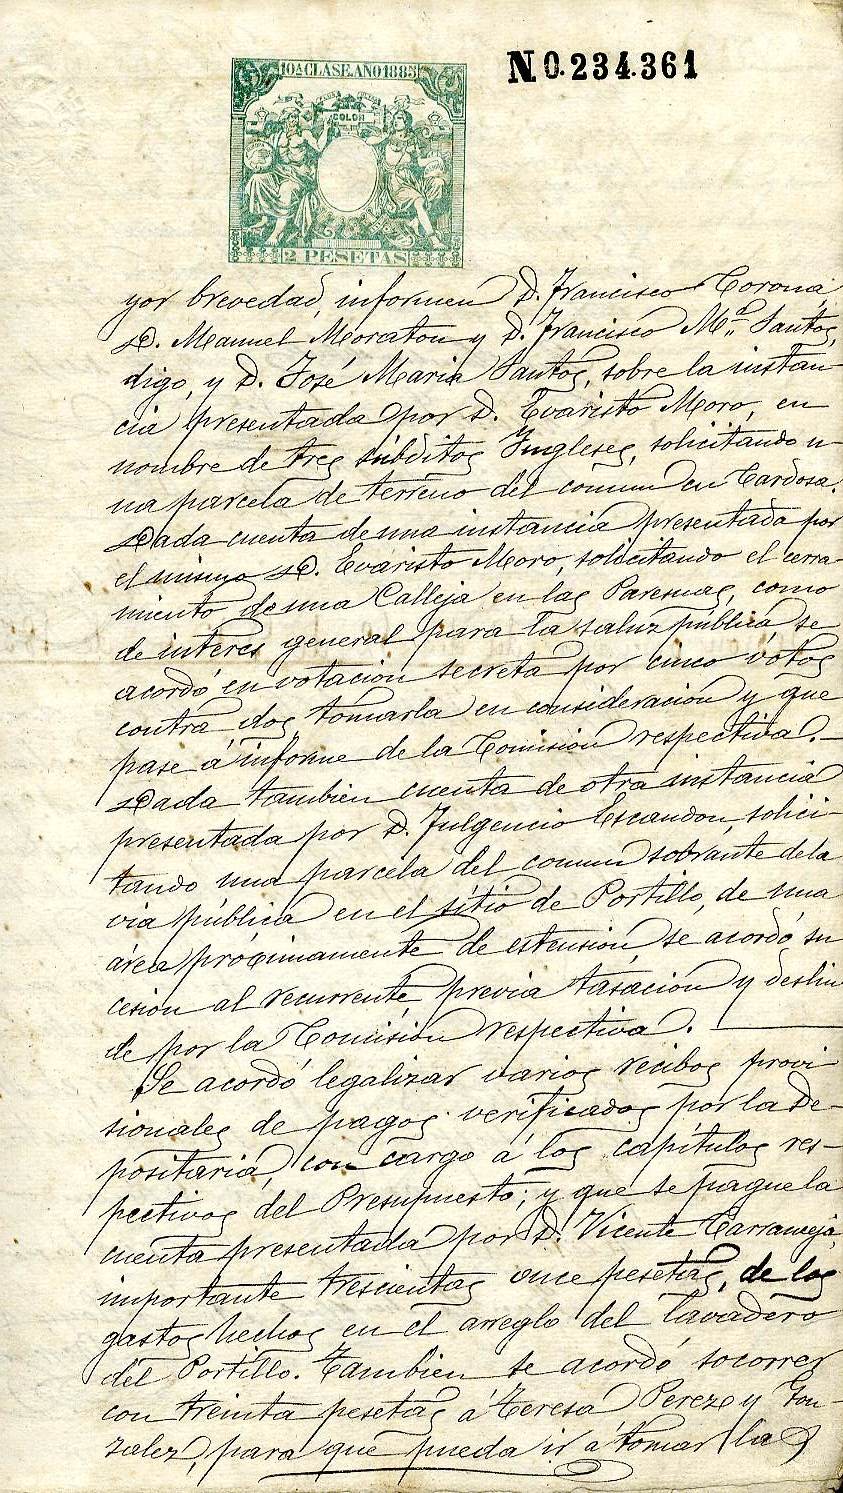 10ª CLASE. AÑO 1885
N 0.234.361
COLON
2 PESETAS
yor brevedad, informen D. Francisco Corona,
D. Manuel Moraton y D. Francisco M.ª Santos,
digo, y D. José Maria Santos, sobre la instan-
cia presentada por D. Evaristo Moro, en
nombre de tres súbditos Ingleses, solicitando u-
na parcela de terreno del comun en Cardosa.
Dada cuenta de una instancia presentada por
el mismo D. Evaristo Moro, solicitando el cerra-
miento de una Calleja en las Paresuas, como
de interes general para la saluz pública se
acordó en votacion secreta por cinco vótos
contra dos tomarla en consideracion y que
pase á informe de la Comision respectiva.—
Dada tambien cuenta de otra instancia
presentada por D. Fulgencio Escandon, solici-
tando una parcela del comun sobrante dela
via pública en el sítio de Portillo, de una
área prócsimamente de estension, se acordó su
cesion al recurrente, previa tasacion y deslin
de por la Comision respectiva. —
Se acordó legalizar varios recibos provi
sionales de pagos verificados por la De-
positaria, con cargo á los capítulos res-
pectivos del Presupuesto; y que se pague la
cuenta presentada por D. Vicente Carranceja,
importante trescientas once pesetas, de los
gastos hechos en el arreglo del lavadero
del Portillo. Tambien se acordó socorrer
con treinta pesetas á Teresa Perez y Gon-
zalez, para que pueda ir á tomar la